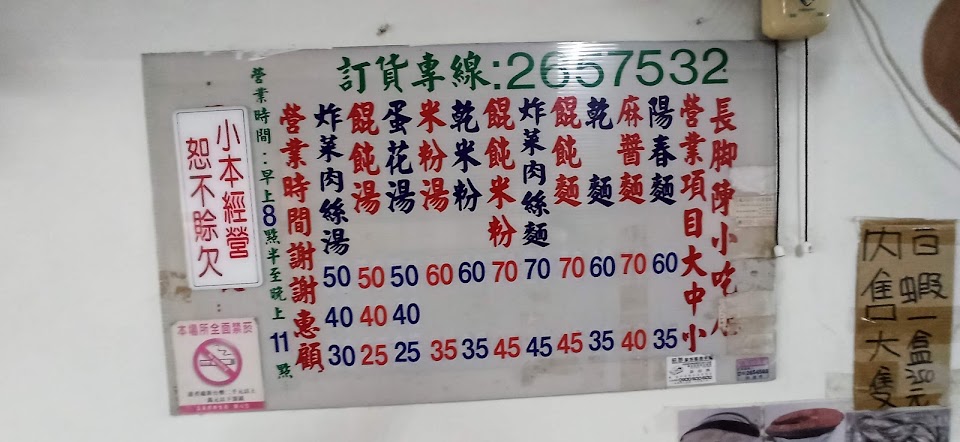 訂貨專線:2657532
長腳陳小吃店
營業項目大中小
陽春麵 60 35
麻醬麵 70 40
乾麵 60 35
餛飩麵 70 45
炸菜肉絲麵 70 45
餛飩米粉 70 45
乾米粉 60 35
米粉湯 60 35
蛋花湯 50 40 25
餛飩湯 50 40 25
炸菜肉絲湯 50 40 30
營業時間謝謝惠顧
營業時間:早上8點半至晚上11點
小本經營
恕不賒欠
本場所全面禁菸
白蝦一盒250元
大隻